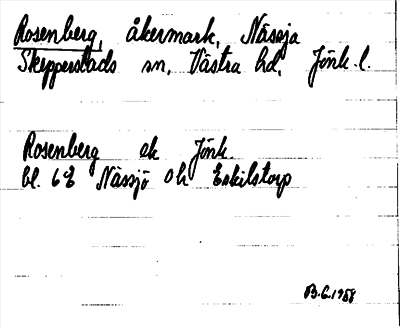 Rosenberg, åkermark, Nässja
Skepperstads sn, Västra hd, Jönk. l.
Rosenberg ek Jönk.
bl. 6E Nässjö Ok Eskilstorp
B.G. 1958